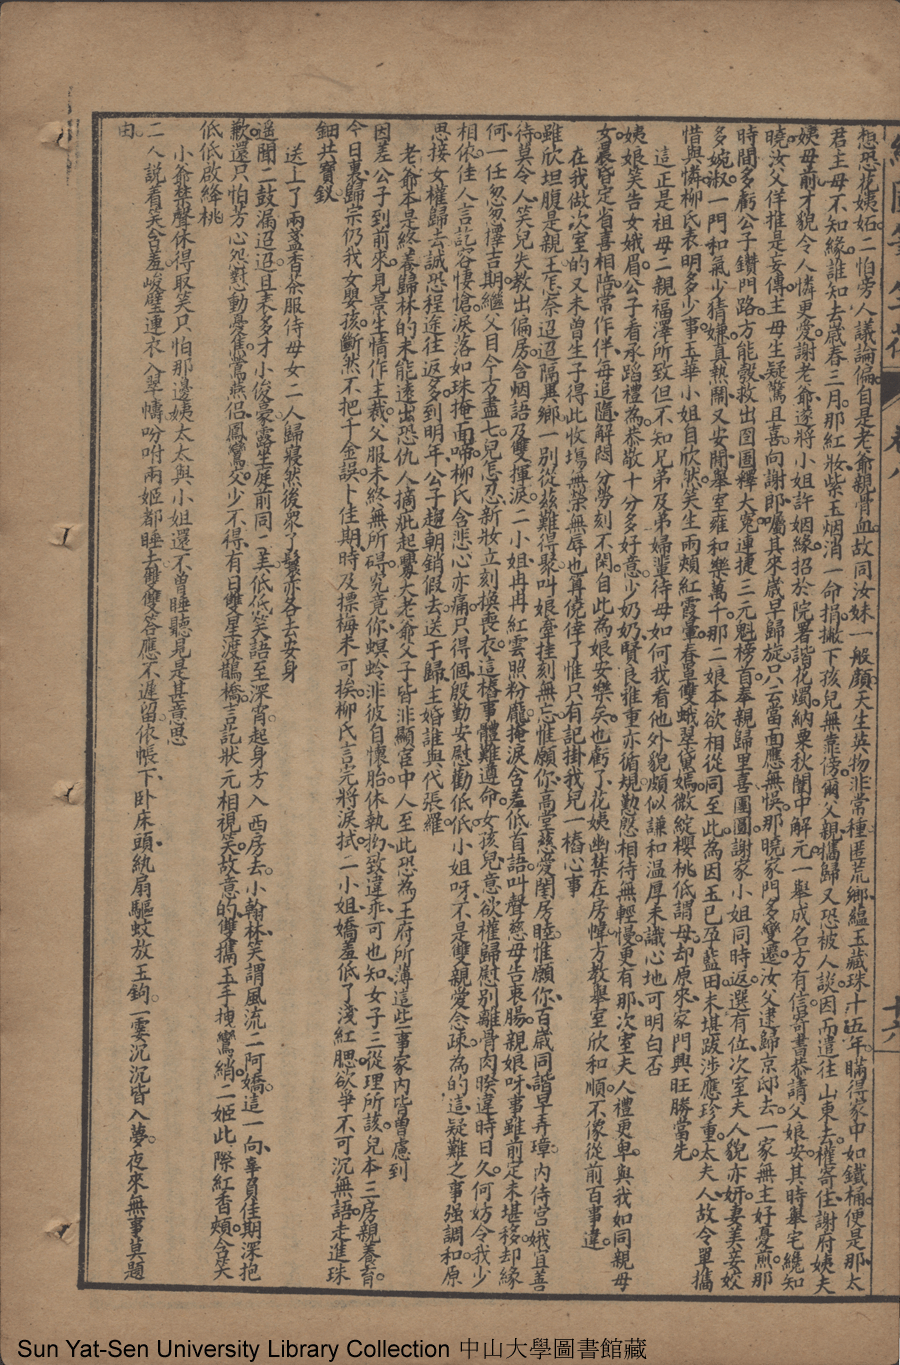 想恐花姨妬二怕旁人議論偏自是老爺親骨血故同汝妹一般顏天生英物非常種匿荒鄉蘊玉藏珠十五年瞞得家中如鐵桶便是那太
君主母不知緣誰知去歲春三月那紅妝紫玉烟消一命捐撇下孩兒無靠傍爾父親攜歸又恐被人談因而遣往山東去權寄住謝府姨夫
姨母前才貌令人憐更愛謝老爺遂將小姐許姻緣招於院署諧花燭納粟秋闈中解元一舉成名方有信寄書恭請父娘安其時舉宅纔知
曉汝父佯推是妄傳主母生疑驚且喜向謝郎囑其來歲早歸旋只云當面應無悞那曉家門多變遷汝父逮歸京邸去一家無主好憂煎那
時間多虧公子鑽門路方能彀救出囹圄釋大冤連捷三元魁榜首奉親歸里喜團圓謝家小姐同時返選有位次室夫人貌亦妍妻美妾姣
多婉淑一門和氣少猜嫌真熱鬧又安閒舉室雍和樂萬千那二娘本欲相從同至此為因玉已孕藍田未堪跋涉應珍重太夫人故令單攜
惜與憐柳氏表明多少事玉華小姐自欣然笑生兩頰紅霞暈春草雙蛾翠黛嫣微綻櫻桃低謂母却原來家門興旺勝當先
這正是祖母二親福澤所致但不知兄弟及弟婦輩待母如何我看他外貌頗似謙和温厚未識心地可明白否
姨娘笑告女娥眉公子看承蹈禮為恭敬十分多好意少奶奶賢良雅重亦循規懃懇相待無輕慢更有那次室夫人禮更卑與我如同親母
女晨昏定省喜相陪常作伴母追隨解悶分勞刻不閑自此為娘安樂矣也虧了花姨幽禁在房幃方教舉室欣和順不像從前百事違
在我做次室的又未曾生子得此收塲無榮無辱也算僥倖了惟只有記掛我兒一樁心事
雖欣坦腹是親王怎奈迢迢隔異鄉一別從茲難得聚叫娘牽挂刻無忘惟願你高堂慈愛閨房睦惟願你百歲同諧早弄璋内侍宫娥宜善
待莫令人笑兒失教出偏房含烟語及雙揮淚二小姐冉冉紅雲照粉龐掩淚含羞低首語叫聲慈母告衷腸親娘呀事雖前定未堪移却緣
何一任忽忽擇吉期繼父日今方盡七兒怎忍新妝立刻換喪衣這樁事體難遵命女孩兒意欲權歸慰别離骨肉暌違時日久何妨令我少
相依佳人言訖容悽愴淚落如珠掩面啼柳氏含悲心亦痛只得個殷勤安慰勸低低小姐呀不是雙親愛念疎為的這疑難之事强調和原
思接女權歸去誠恐程途往返多到明年公子趨朝銷假去送于歸主婚誰與代張羅
老爺本是終養歸林的未能遠出恐仇人摘疵起釁夫老爺父子皆非顯宦中人至此恐為王府所薄這些事家内皆曾慮到
因差公子到前來見景生情作主裁父服未終無所碍究竟你螟蛉非彼自懷胎休執拘致違乖可也知女子三從理所該兒本三房親養育
今日裏歸宗仍我女嬰孩斷然不把千金誤卜佳期時及摽梅未可挨柳氏言完將淚拭二小姐嬌羞低了淺紅腮欲爭不可沉無語走進珠
鈿共寶釵
送上了兩盞香茶服侍母女二人歸寢然後衆了鬟亦各去安身
遥聞二鼓漏迢迢且表多才小俊豪露坐庭前同二美低低笑語至深宵起身方入西房去小翰林笑謂風流二阿嬌這一向辜負佳期深抱
歉還只怕芳心怨懟動憂焦鶯燕侣鳳鸞交少不得有日雙星渡鵲橋言訖狀元相視笑故意的雙攜玉手拽鸞綃二姬此際紅香頰含笑
低低啟絳桃
小爺禁聲休得取笑只怕那邊姨太太與小姐還不曾睡聽見是甚意思
二人說着笑含羞峻壁連衣入翠幬吩咐兩姬都睡去雙雙答應不遲留依帳下卧床頭紈扇驅蚊放玉鉤一霎沉沉皆入夢夜來無事莫題
由
卷八
十六
Sun Yat-Sen University Library Collection 中山大學圖書館藏